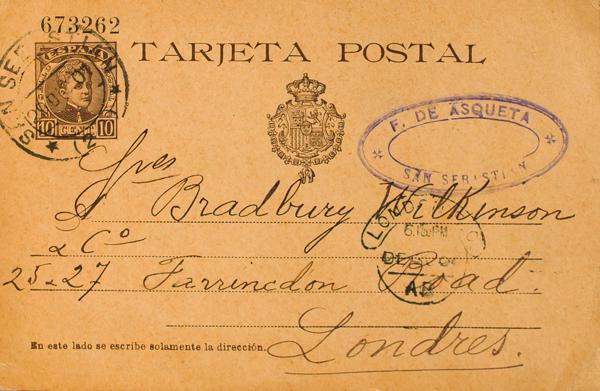 673262
ESPAÑA
10 CENT. 10
TARJETA POSTAL
F. DE ASQUETA
SAN SEBASTIAN
Sres
Bradbury Wilkinson
& Cº
25-27 Farrincdon Road.
Londres.
LONDON
6.15 PM
DE
AB
En este lado se escribe solamente la dirección.